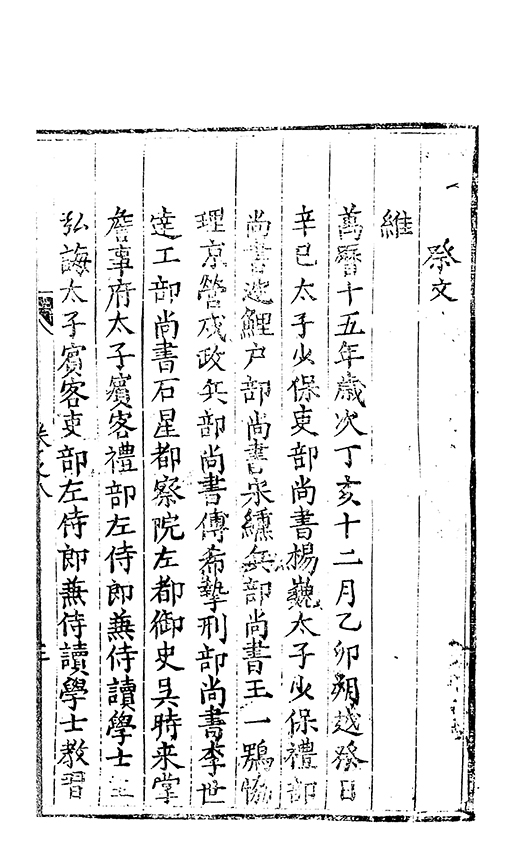 祭文
維
萬曆十五年歲次丁亥十二月乙卯朔越癸日
辛巳太子少保吏部尚書楊巍太子少保禮部
尚書沈鯉户部尚書宋纁兵部尚書王一鶚協
理京營戎政兵部尚書傅希摯刑部尚書李世
達工部尚書石星都察院左都御史吳時来掌
詹事府太子賓客禮部左侍郎兼侍讀學士
弘誨太子賓客吏部左侍郎兼侍讀學士教習